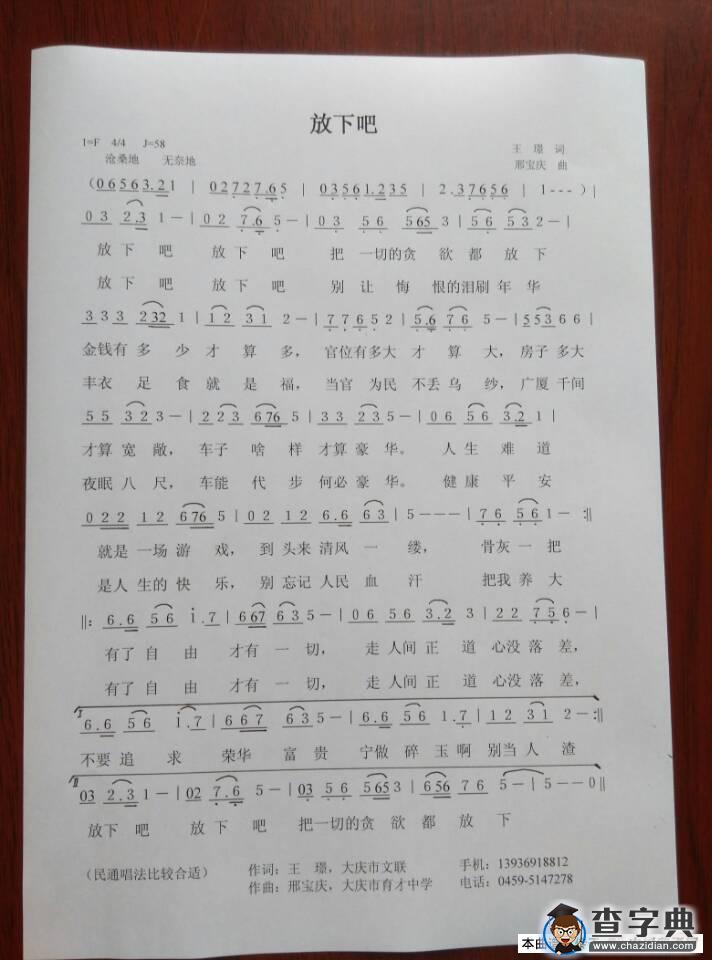 放下吧
1=F 4/4 J=58
王璟 词
沧桑地 无奈地
邢宝庆 曲
(06563.21 | 02727.65 | 03561.235 | 2.37656 | 1---)|
03 2.3 1-|02 7.6 5-|03 56 565 3|56 532-|
放下吧 放下吧 把一切的贪欲都放下
放下吧 放下吧 别让悔恨的泪刷年华
333 232 1|12 31 2-|77652|5.6 76 5-|55366|
金钱有多少才算多，官位有多大才算大，房子多大
丰衣足食就是福，当官为民不丢乌纱，广厦千间
55 323-|223 676 5|3432 3-|06 56 3.21|
才算宽敞，车子啥样才算豪华。人生难道
夜眠八尺，车能代步何必豪华。健康平安
022 12 676 5|02 12 6.6 63|5---|76 561-:‖
就是一场游戏，到头来清风一缕，骨灰一把
是人生的快乐，别忘记人民血汗 把我养大
‖:6.6 56 i.7|667 635-|06 56 3.2 3|22 756-|
有了自由才有一切，走人间正道心没落差，
有了自由才有一切，走人间正道心没落差，
I
6.6 56 i.7|667 635-|6.6 56 1.7|12 31 2-:‖
不要追求荣华富贵宁做碎玉啊别当人渣
II
03 2.3 1-|02 7.6 5-|03 56 565 3|656 76 5-|5--0‖
放下吧 放下吧 把一切的贪欲都放下
（民通唱法比较合适）
作词：王璟，大庆市文联 手机：13936918812
作曲：邢宝庆，大庆市育才中学 电话：0459-5147278
本曲
查字典
www.chazidian.com